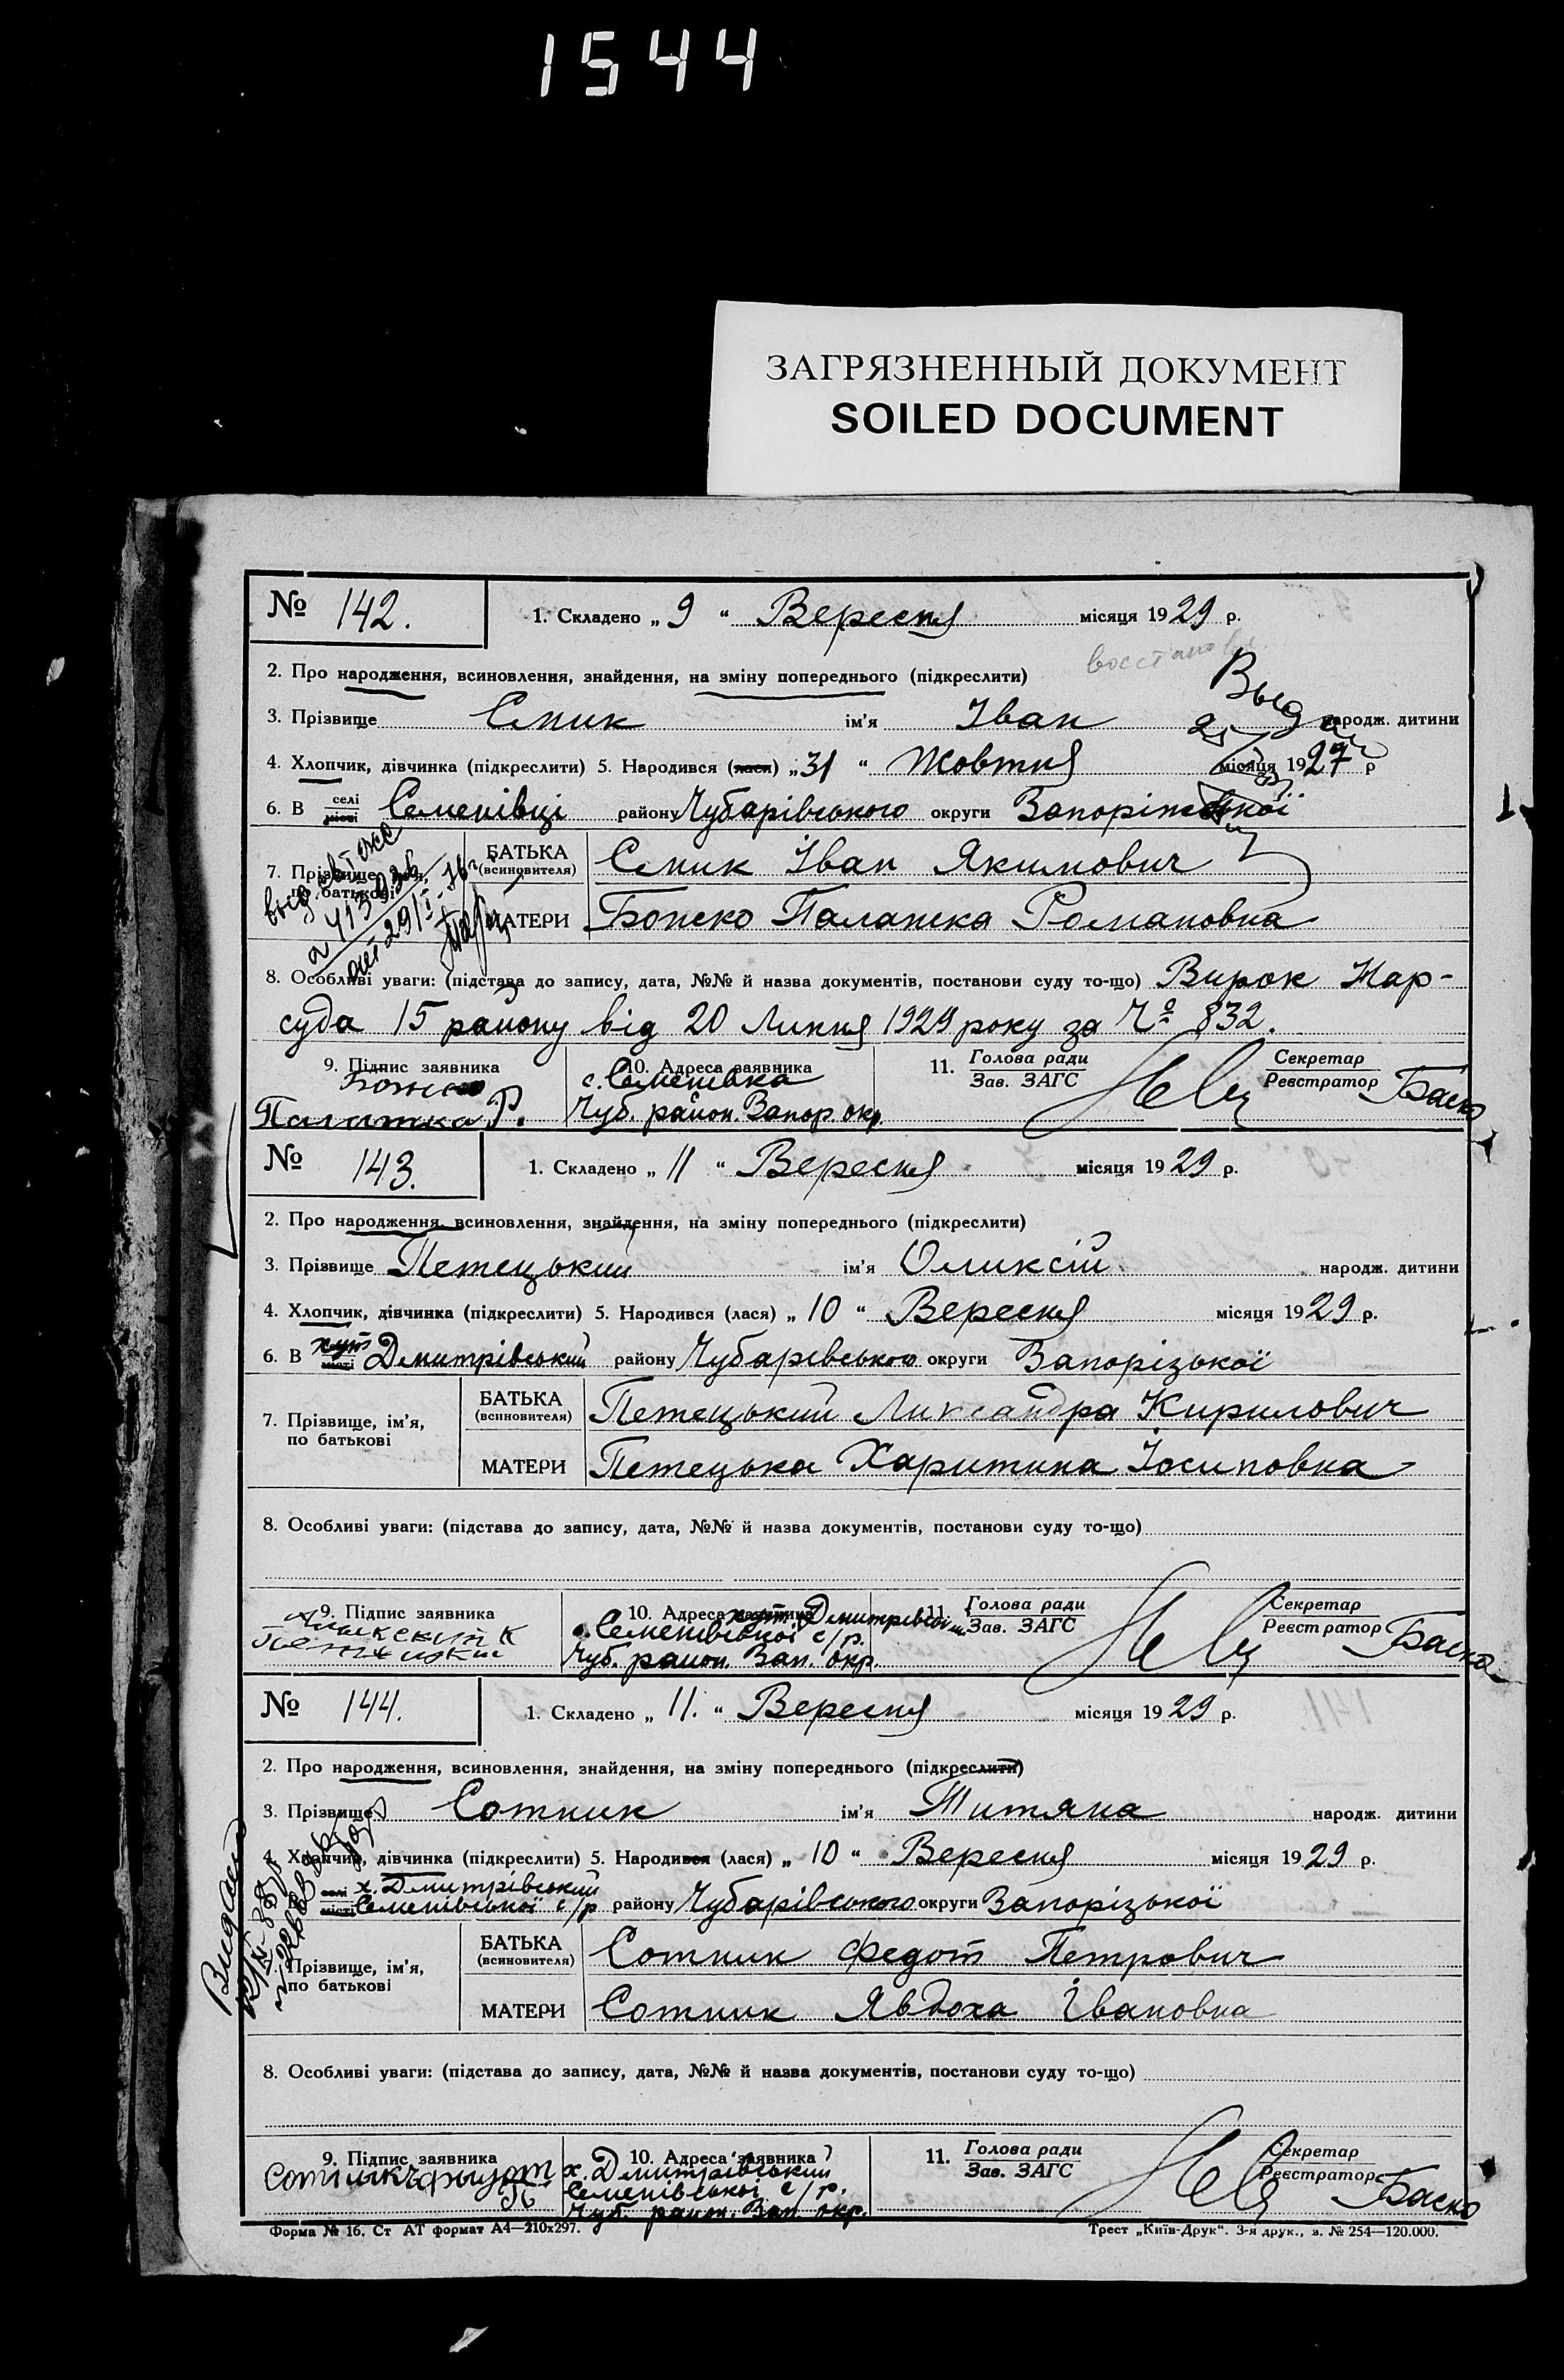 1544
ЗАГРЯЗНЕННЫЙ ДОКУМЕНТ
SOILED DOCUMENT
№ 142. 1. Складено „ 9 “ Вересня місяця 1929 р.
2. Про народження, всиновлення, знайдення, на зміну попереднього (підкреслити)
восстановл.
3. Прізвище Спик ім’я Іван народж. дитини
4. Хлопчик, дівчинка (підкреслити) 5. Народився (лася) „ 31 “ Жовтня місяця 1927 р
6. В селі місті Семенівці району Чубарівського округи
7. Прізвище, ім’я, по батькові БАТЬКА (всиновителя) Спик Іван Якимович
МАТЕРИ Божко Палажка Романовна
8. Особливі уваги: (підстава до запису, дата, №№ й назва документів, постанови суду то-що) Вирок Нар-
суда 15 району від 20 Липня 1929 року за № 832.
9. Підпис заявника 10. Адреса заявника 11. Голова ради Зав. ЗАГС Секретар Реєстратор
Божко с. Семенівка
Палажка Р. Чуб. район. Запор. окр.
№ 143. 1. Складено „ 11 “ Вересня місяця 1929 р.
2. Про народження, всиновлення, знайдення, на зміну попереднього (підкреслити)
3. Прізвище Петецький ім’я Оликсій народж. дитини
4. Хлопчик, дівчинка (підкреслити) 5. Народився (лася) „ 10 “ Вересня місяця 1929 р.
6. В хут місті Дмитрівський району Чубарівського округи Запорізької
7. Прізвище, ім’я, по батькові БАТЬКА (всиновителя) Петецький Ликсандра Кирилович
МАТЕРИ Петецька Харитина Йосиповна
8. Особливі уваги: (підстава до запису, дата, №№ й назва документів, постанови суду то-що)
9. Підпис заявника 10. Адреса заявника 11. Голова ради Зав. ЗАГС Секретар Реєстратор
хут. Дмитрівський
Семенівської с/р.
Чуб. район. Зап. окр.
№ 144. 1. Складено „ 11. “ Вересня місяця 1929 р.
2. Про народження, всиновлення, знайдення, на зміну попереднього (підкреслити)
3. Прізвище Сотник ім’я Титяна народж. дитини
4. Хлопчик, дівчинка (підкреслити) 5. Народився (лася) „ 10 “ Вересня місяця 1929 р.
селі місті х. Дмитрівський
Семенівської с/р району Чубарівського округи Запорізької
Прізвище, ім’я, по батькові БАТЬКА (всиновителя) Сотник Федот Петрович
МАТЕРИ Сотник Явдоха Івановна
Видано
8. Особливі уваги: (підстава до запису, дата, №№ й назва документів, постанови суду то-що)
9. Підпис заявника 10. Адреса заявника 11. Голова ради Зав. ЗАГС Секретар Реєстратор
х. Дмитрівський
Семенівської с/р.
Чуб. район. Зап. окр.
Форма № 16. Ст АТ формат А4—210х297. Трест „Київ-Друк“. 3-я друк., з. № 254—120.000.